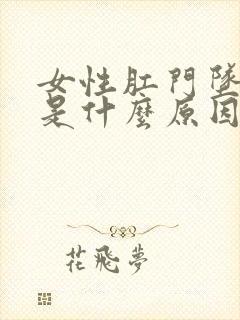 女性肛門墜
是什麼原因
花飛夢